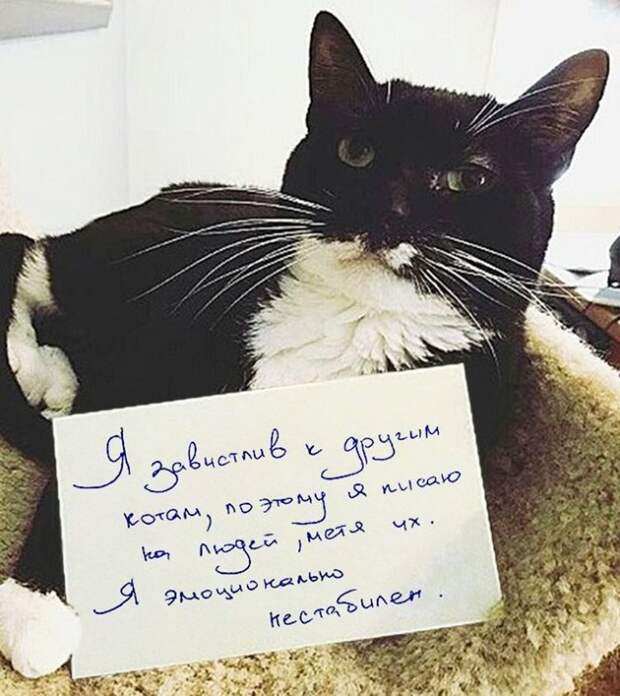 Я завистлив к другим
котам, поэтому я писаю
на людей, метя их.
Я эмоционально
нестабилен.